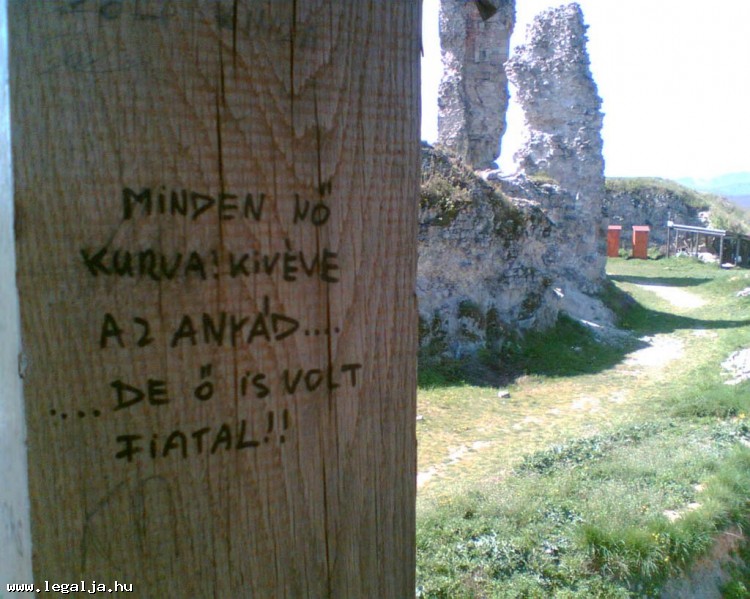 MINDEN NŐ
KURVA! KIVÈVE
AZ ANYÁD....
....DE Ő IS VOLT
FIATAL!!
www.legalja.hu